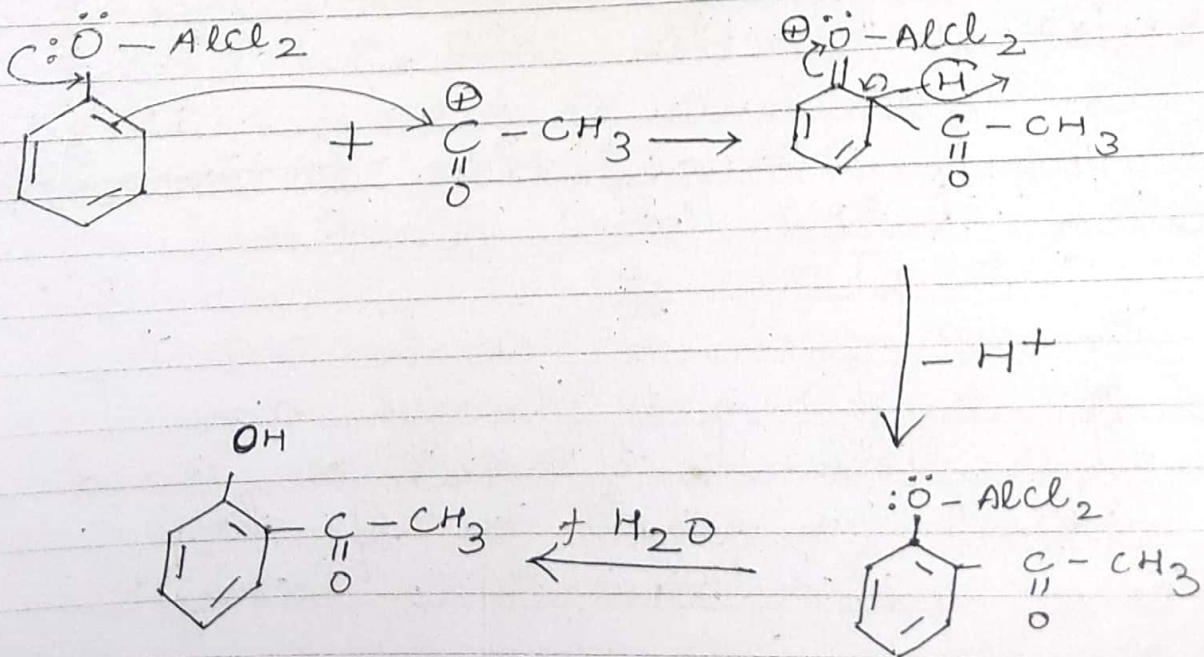 :Ö – AlCl₂
+
⊕
C – CH₃
||
O
⊕ :Ö – AlCl₂
H
C – CH₃
||
O
– H⁺
:Ö – AlCl₂
C – CH₃
||
O
+ H₂O
OH
C – CH₃
||
O